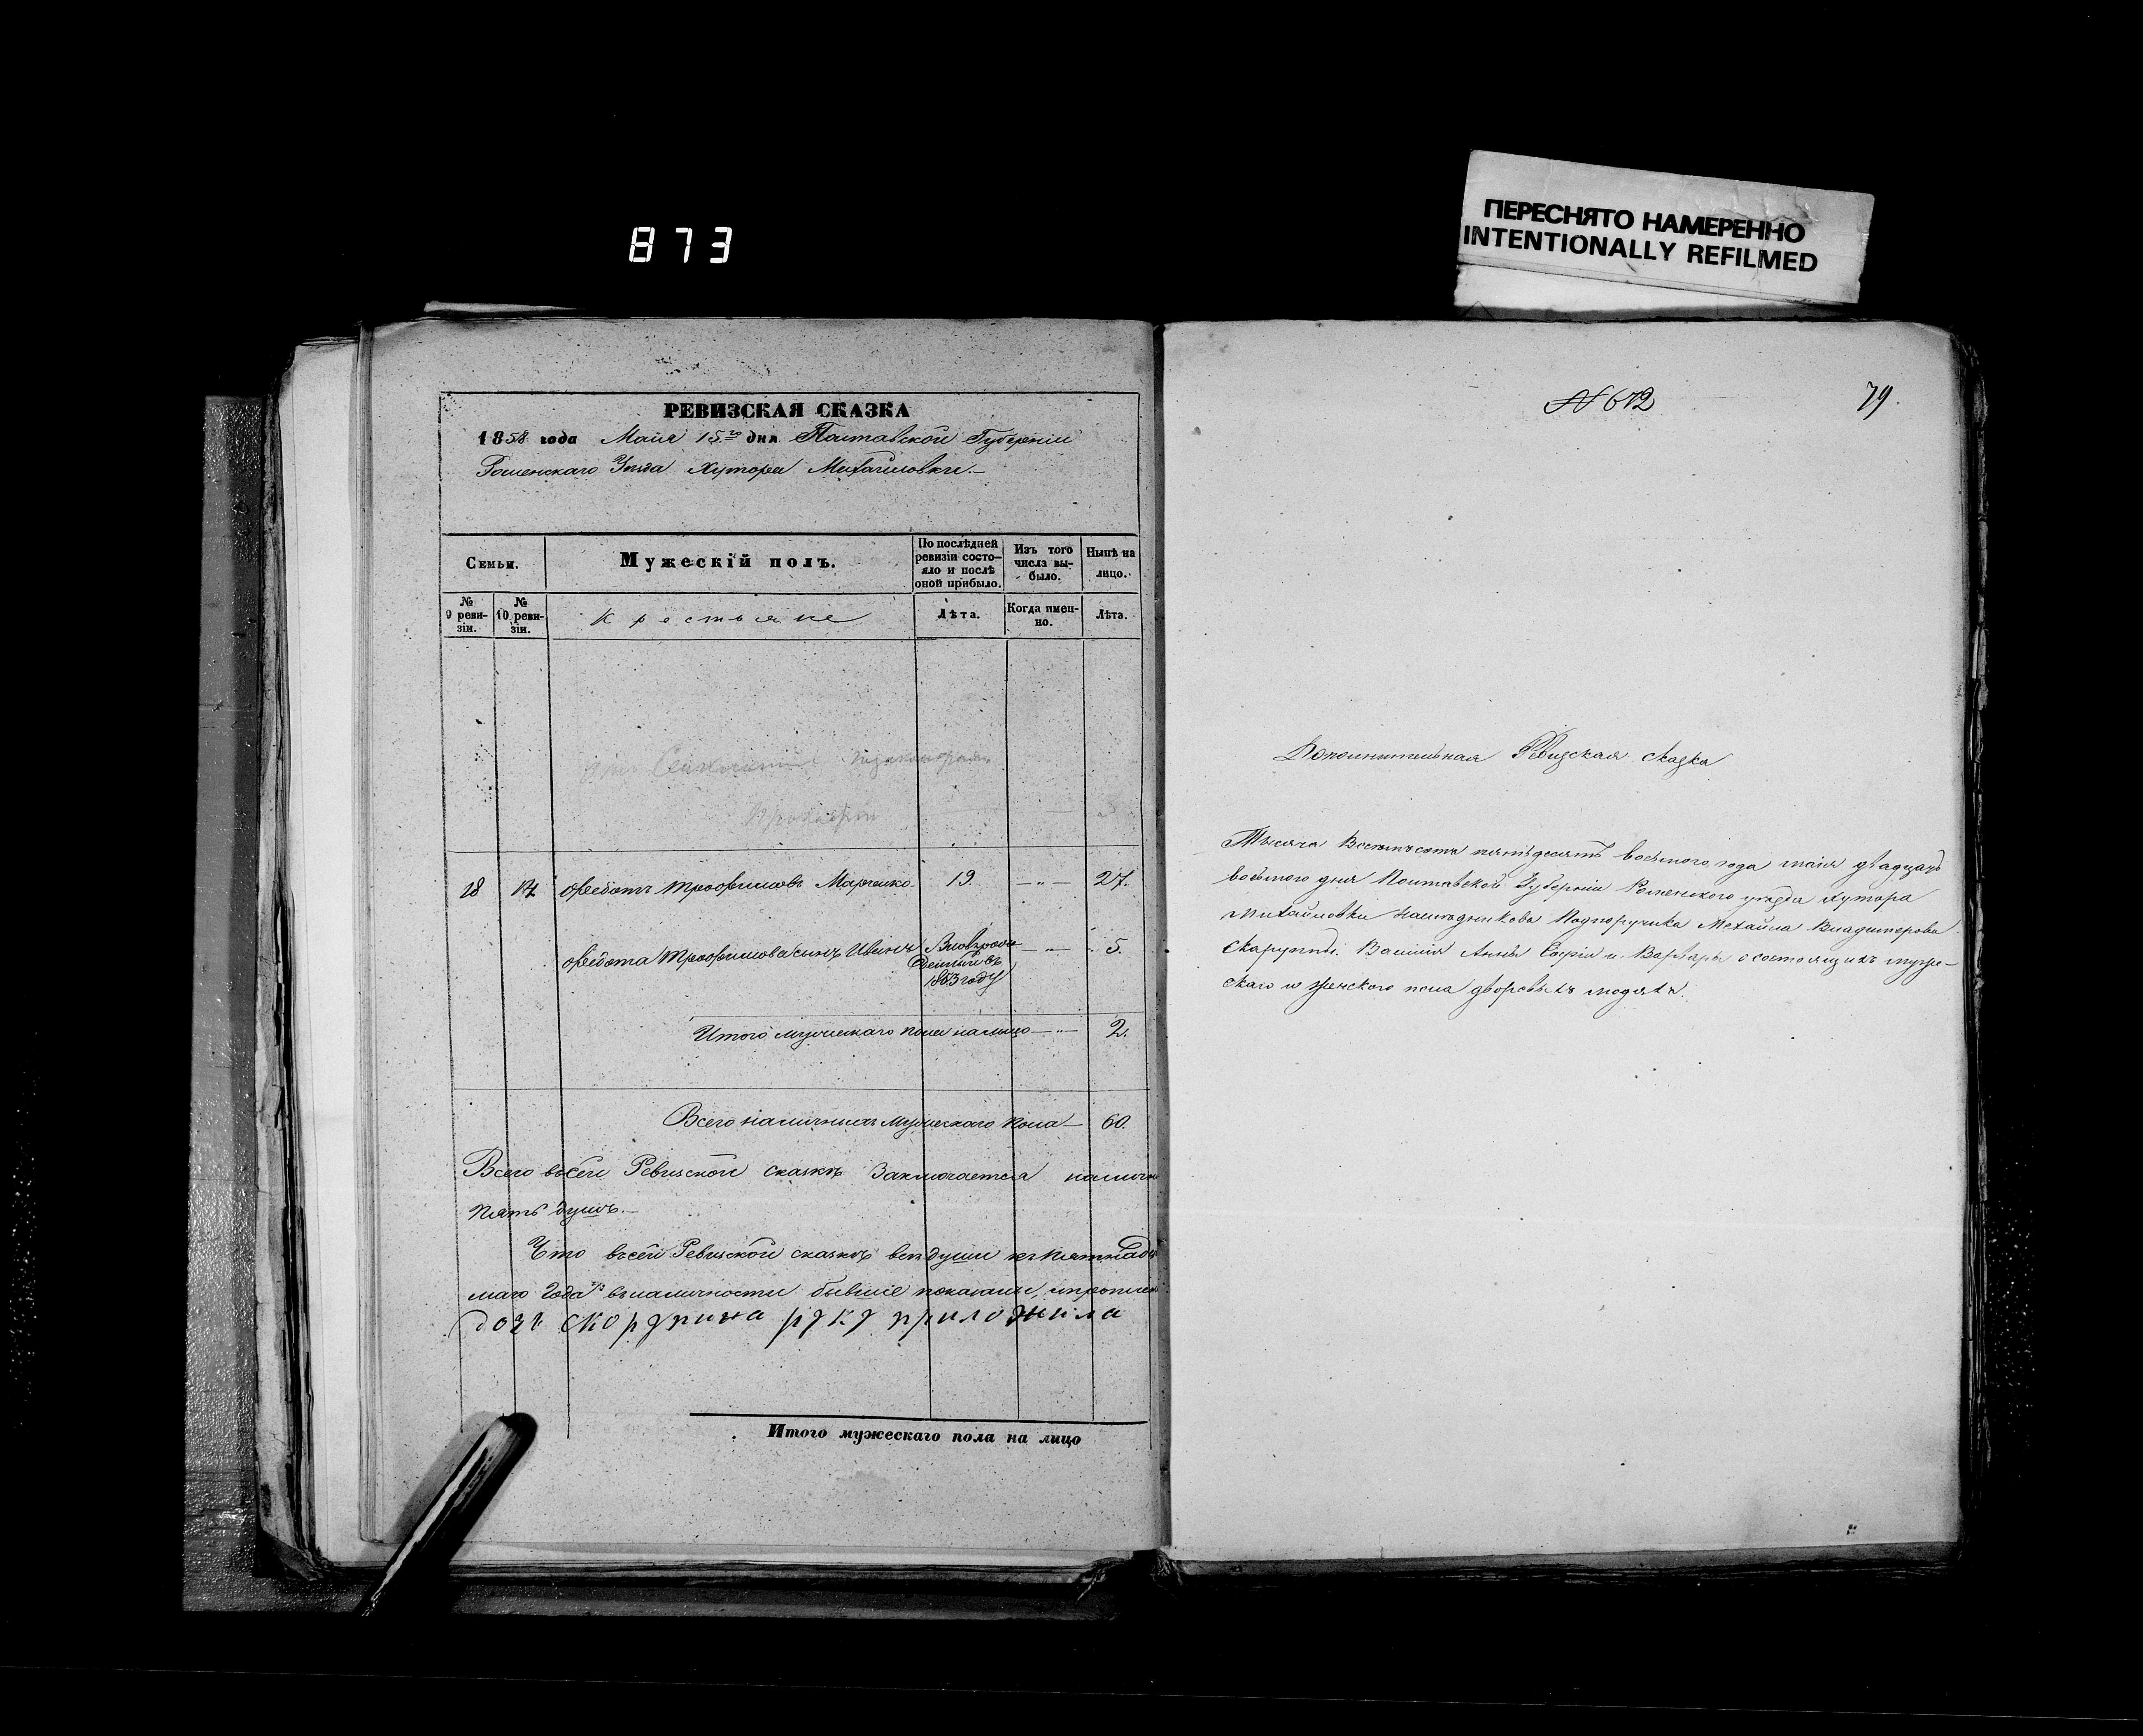 873
ПЕРЕСНЯТО НАМЕРЕННО
INTENTIONALLY REFILMED
РЕВИЗСКАЯ СКАЗКА
1858 года Мая 15го дня Полтавской Губерніи
Роменскаго Уѣзда Хутора Михайловки.—
Семьи.
Мужескій полъ.
По послѣдней ревизіи состо-яло и послѣ оной прибыло.
Изъ того числа вы-было.
Нынѣ на лицо.
№ 9 реви-зіи.
№ 10 реви-зіи.
Крестьяне
Лѣта.
Когда имен-но.
Лѣта.
18 14 Ѳедотъ Трофимовъ Марченко. 19. — " — 27.
Ѳедота Трофимова сынъ Иванъ Вновьрож денный въ 1853 году — " — 5.
Итого мужескаго пола налицо — " — 2.
Всего наличныхъ мужескаго пола — 60.
Всего въсей Ревизской сказкѣ Заключается налич
пять душъ.—
Что въсей Ревизской сказкѣ всѣ души къ пятнад
маго Года въ наличности бывшіе показаны,
руку приложила
Итого мужескаго пола на лицо
№ 612
79.
Дополнительная Ревизская сказка
Тысяча Восемьсотъ пятьдесятъ восьмого года маія двадцать
восьмого дня Полтавской Губерніи Роменского уѣзда хутора
Михайловки Наслѣдниковъ Подпоручика Михайла Владимерова
Скаругины. Василія Анны Софіи и Варвары о состоящихъ муже-
скаго и женского пола дворовыхъ людяхъ.